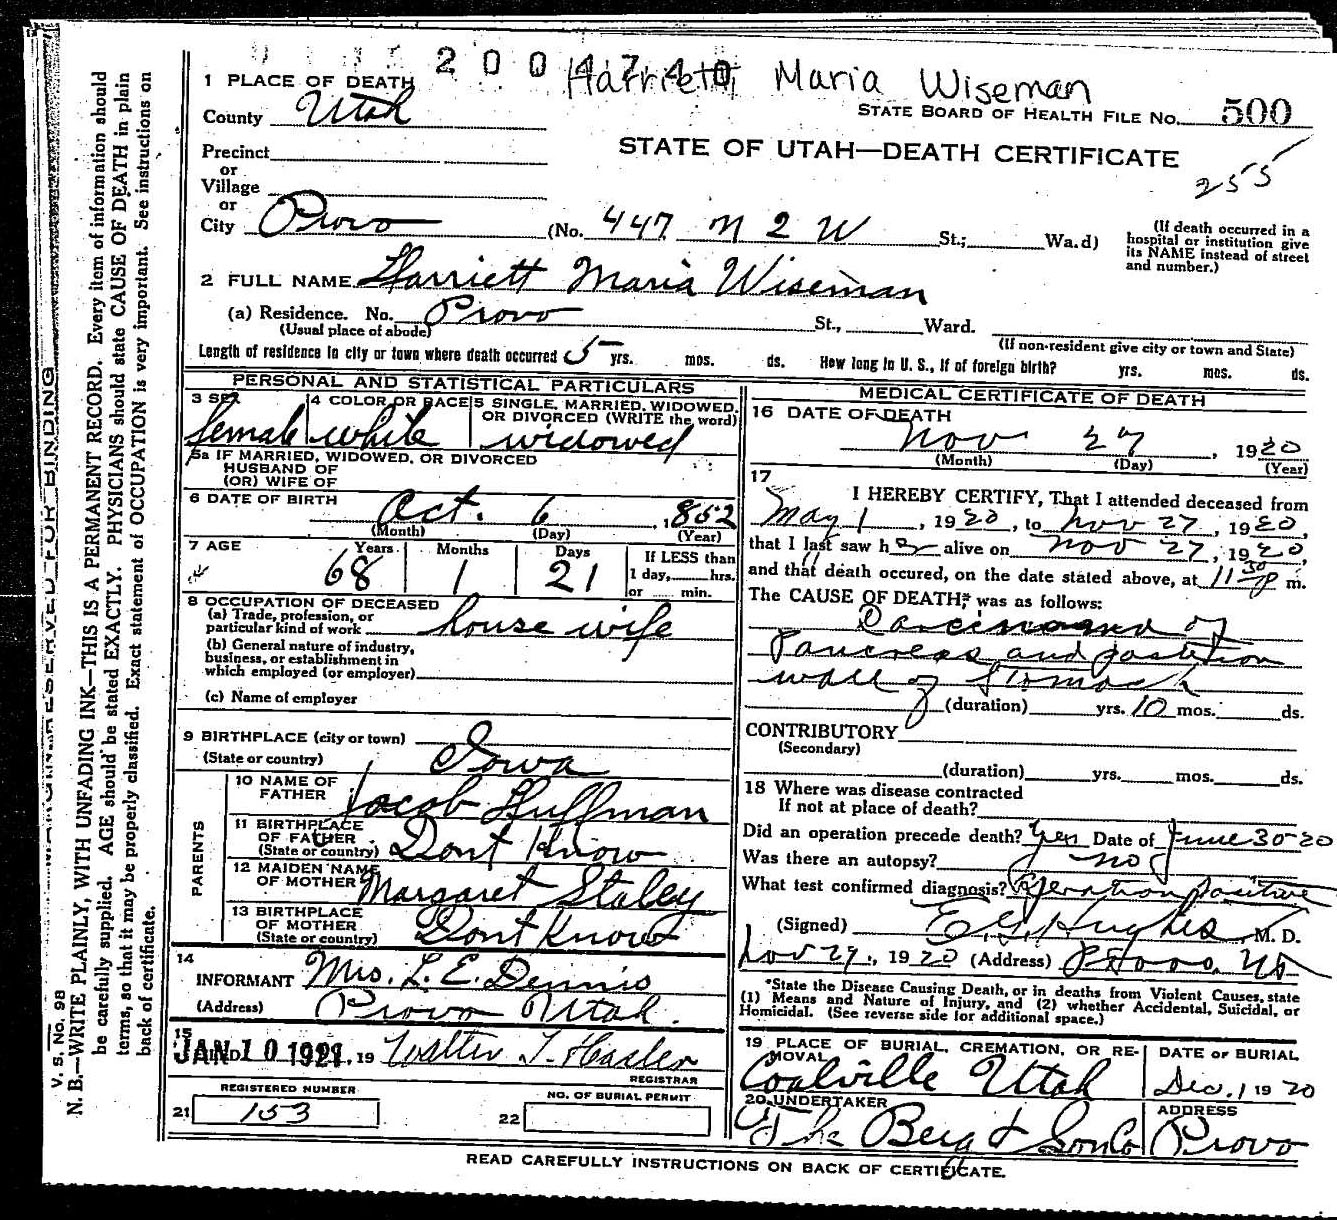 2004740
Harriett Maria Wiseman
1 PLACE OF DEATH
County Utah
STATE BOARD OF HEALTH FILE No. 500
STATE OF UTAH—DEATH CERTIFICATE
255
Precinct
or
Village
or
City Provo (No. 447 N 2 W St.; Wa.d)
(If death occurred in a
hospital or institution give
its NAME instead of street
and number.)
2 FULL NAME Harriett Maria Wiseman
(a) Residence. No. Provo St., Ward.
(Usual place of abode)
(If non-resident give city or town and State)
Length of residence in city or town where death occurred 5 yrs. mos. ds. How long in U. S., if of foreign birth? yrs. mos. ds.
PERSONAL AND STATISTICAL PARTICULARS
3 SEX
female
4 COLOR OR RACE
white
5 SINGLE, MARRIED, WIDOWED,
OR DIVORCED (WRITE the word)
widowed
5a IF MARRIED, WIDOWED, OR DIVORCED
HUSBAND OF
(OR) WIFE OF
6 DATE OF BIRTH Oct. 6, 1852
(Month) (Day) (Year)
7 AGE
Years Months Days
68 1 21
If LESS than
1 day, hrs.
or min.
8 OCCUPATION OF DECEASED
(a) Trade, profession, or
particular kind of work house wife
(b) General nature of industry,
business, or establishment in
which employed (or employer)
(c) Name of employer
9 BIRTHPLACE (city or town)
(State or country) Iowa
PARENTS
10 NAME OF
FATHER Jacob Huffman
11 BIRTHPLACE
OF FATHER
(State or country) Dont Know
12 MAIDEN NAME
OF MOTHER Margaret Staley
13 BIRTHPLACE
OF MOTHER
(State or country) Dont Know
14
INFORMANT Mrs. L. E. Dennis
(Address) Provo Utah.
15
JAN 10 1921, 19 Walter T. Hasler
REGISTRAR
REGISTERED NUMBER
21 153
NO. OF BURIAL PERMIT
22
MEDICAL CERTIFICATE OF DEATH
16 DATE OF DEATH
Nov 27, 1920
(Month) (Day) (Year)
17
I HEREBY CERTIFY, That I attended deceased from
May 1, 1920, to Nov 27, 1920,
that I last saw her alive on Nov 27, 1920,
and that death occured, on the date stated above, at 11 30 P m.
The CAUSE OF DEATH,* was as follows:
Carcinoma of
Pancreas and
wall of Stomach
(duration) yrs. 10 mos. ds.
CONTRIBUTORY
(Secondary)
(duration) yrs. mos. ds.
18 Where was disease contracted
If not at place of death?
Did an operation precede death? Yes Date of June 30-20
Was there an autopsy? no
What test confirmed diagnosis? Operation positive
(Signed) E. G. Hughes, M. D.
Nov 29, 1920 (Address) Provo, Ut
*State the Disease Causing Death, or in deaths from Violent Causes, state
(1) Means and Nature of Injury, and (2) whether Accidental, Suicidal, or
Homicidal. (See reverse side for additional space.)
19 PLACE OF BURIAL, CREMATION, OR RE-
MOVAL
Coalville Utah
DATE OF BURIAL
Dec. 1 1920
20 UNDERTAKER
The Berg & Son Co
ADDRESS
Provo
READ CAREFULLY INSTRUCTIONS ON BACK OF CERTIFICATE.
V. S. No. 98
MARGIN RESERVED FOR BINDING
N. B.—WRITE PLAINLY, WITH UNFADING INK—THIS IS A PERMANENT RECORD. Every item of information should
be carefully supplied. AGE should be stated EXACTLY. PHYSICIANS should state CAUSE OF DEATH in plain
terms, so that it may be properly classified. Exact statement of OCCUPATION is very important. See instructions on
back of certificate.